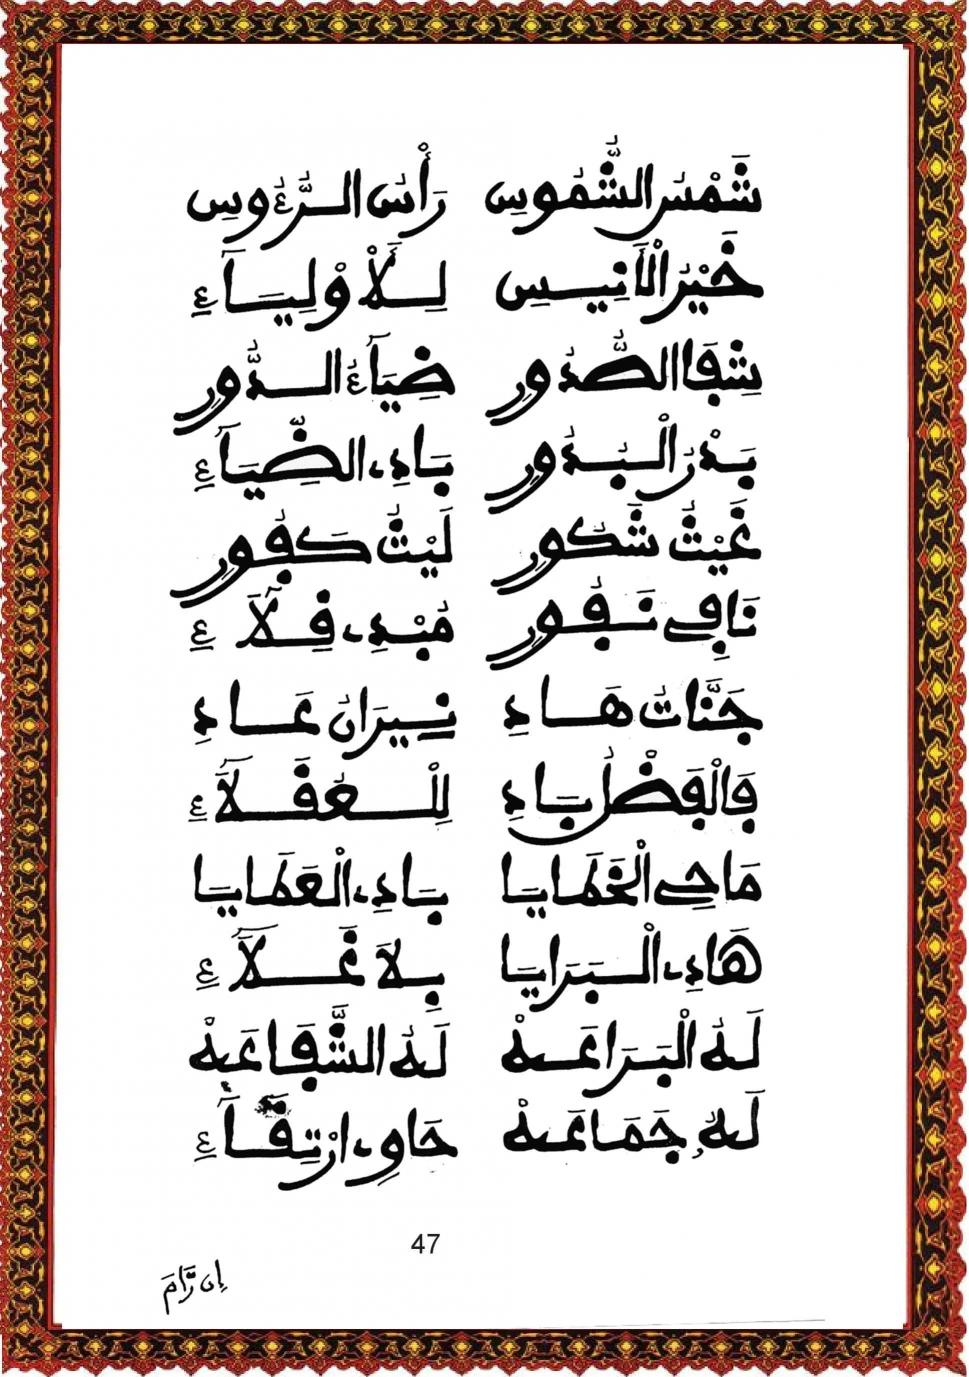 شَمْسُ الشُّمُوسِ رَأْسُ الرُّءُوسِ
خَيْرُ الْأَنِيسِ لِلْأَوْلِيَآءِ
شِفَا الصُّدُورِ ضِيَآءُ الدُّورِ
بَدْرُ الْبُدُورِ بَادِي الضِّيَآءِ
غَيْثٌ شَكُورٌ لَيْثٌ كَفُورٌ
نَافِي نُفُورٍ مُبْدِي فِلَآءِ
جَنَّاتُ هَادٍ نِيرَانُ عَادٍ
فَالْفَضْلُ بَادٍ لِلْعُقَلَآءِ
مَاحِي الْخَطَايَا بَادِي الْعَطَايَا
هَادِي الْبَرَايَا بِلَا غَلَآءِ
لَهُ الْبَرَاعَهْ لَهُ الشَّفَاعَهْ
لَهُ جَمَاعَهْ حَاوِي ارْتِقَآءِ
47